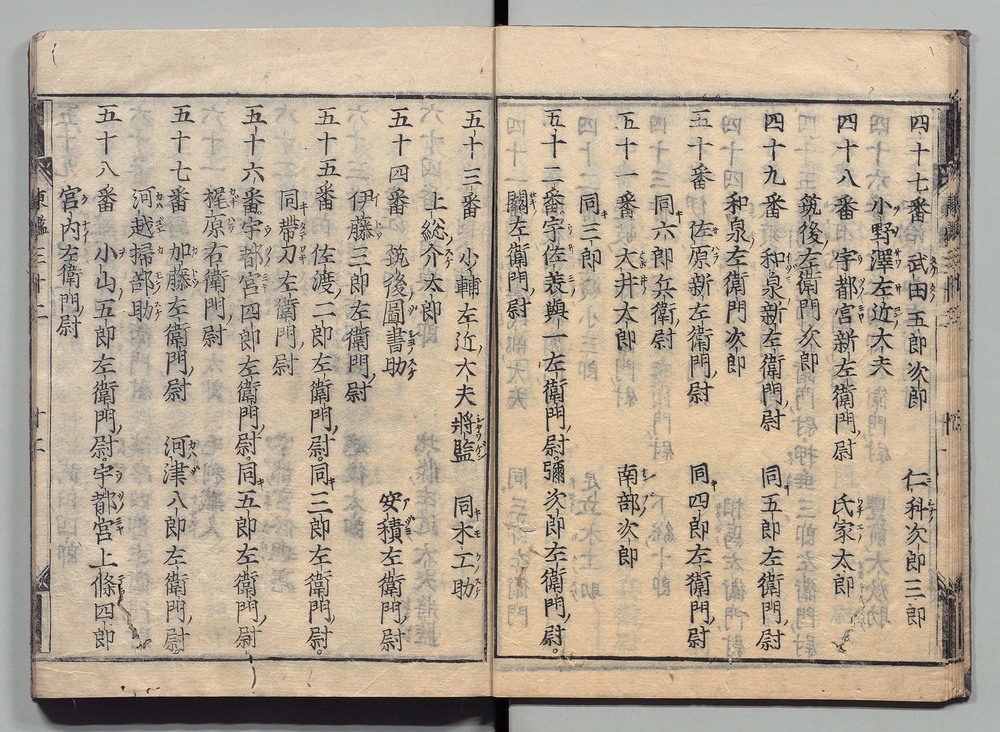 四十七番 武田五郎次郎 仁科次郎三郎
小野澤左近大夫
四十八番 宇都宮新左衛門尉 氏家太郎
筑後左衛門次郎
四十九番 和泉新左衛門尉 同五郎左衛門尉
和泉左衛門次郎
五十番 佐原新左衛門尉 同四郎左衛門尉
同六郎兵衛尉
五十一番 大井太郎 南部次郎
同三郎
五十二番 宇佐美與一左衛門尉。彌次郎左衛門尉。
關左衛門尉
五十三番 少輔左近大夫將監 同木工助
上総介太郎
五十四番 筑後圖書助 安積左衛門尉
伊藤三郎左衛門尉
五十五番 佐渡二郎左衛門尉。同三郎左衛門尉。
同帶刀左衛門尉
五十六番 宇都宮四郎左衛門尉。同五郎左衛門尉。
梶原右衛門尉
五十七番 加藤左衛門尉 河津八郎左衛門尉。
河越掃部助
五十八番 小山五郎左衛門尉。宇都宮上條四郎
宮内左衛門尉
東鑑三十二 十二